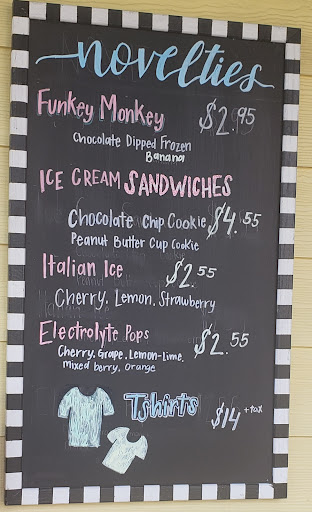 novelties
Funkey Monkey $2.95
Chocolate Dipped Frozen
Banana
ICE CREAM SANDWICHES
Chocolate Chip Cookie $4.55
Peanut Butter Cup Cookie
Italian Ice $2.55
Cherry, Lemon, Strawberry
Electrolyte Pops $2.55
Cherry, Grape, Lemon-Lime,
Mixed berry, Orange
Tshirts $14 +tax